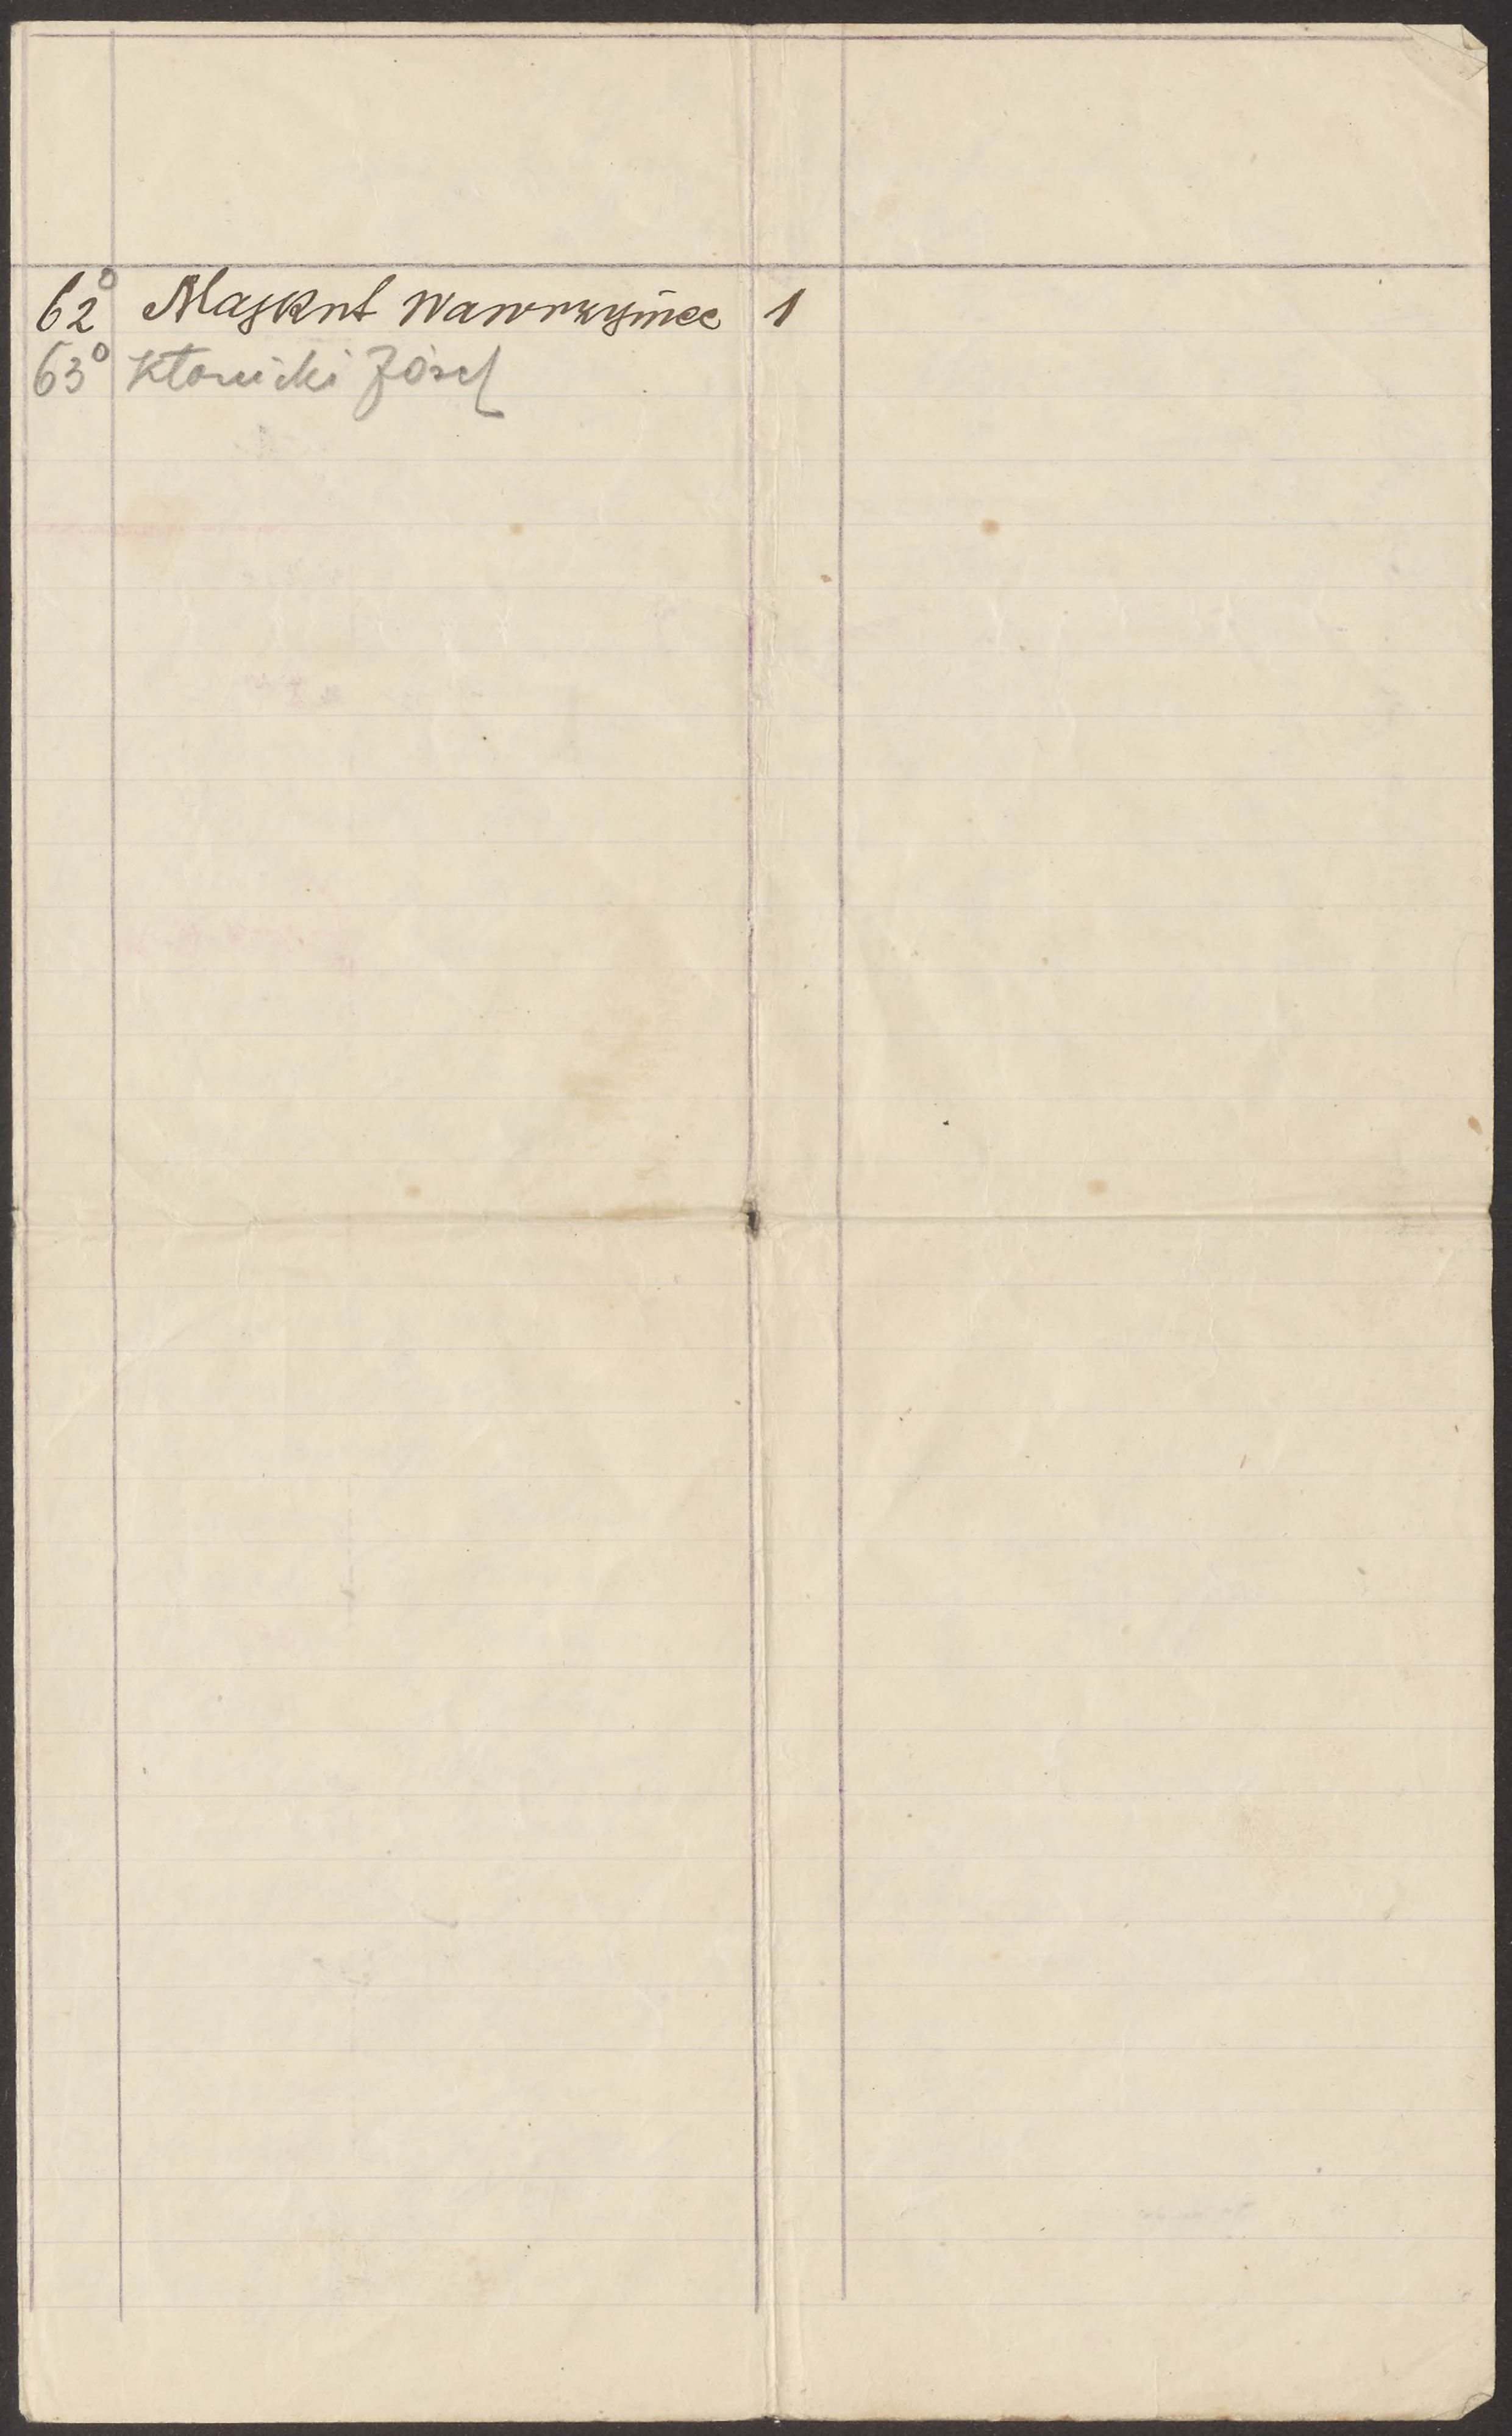 62° Majkut Wawrzyniec 1
63° Kłonicki Józef